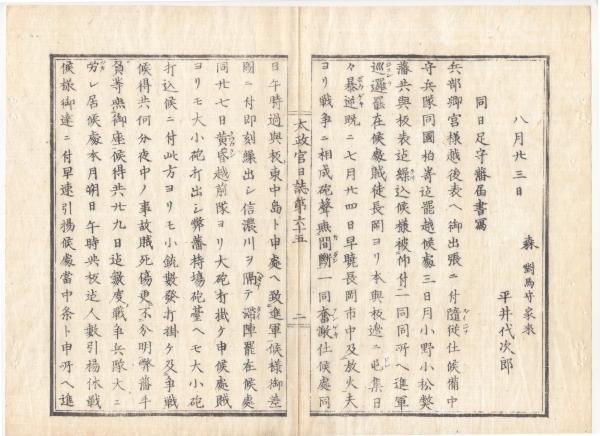 八月廿三日
森對馬守家來
平井代次郎
同日足守藩届書寫
兵部卿宮樣越後表ヘ御出張ニ付隨從仕候備中
守兵隊同國柏嵜迠罷越候處三日月小野小松弊
藩共與板表迠繰込候樣被仰付一同同所ヘ進軍
巡邏罷在候處賊徒長岡ヨリ本與板邊ニ屯集日
々暴逆既ニ七月廿四日早曉長岡市中及放火夫
ヨリ戰爭ニ相成砲聲無間斷一同奮激仕候處同
太政官日誌第六十五
二
日午時過與板東中島ト申處ヘ致進軍候樣御差
圖ニ付即刻繰出シ信濃川ヲ隔テ滯陣罷在候處
同廿七日黄昏越前隊ヨリ大砲打掛ケ申候處賊
ヨリモ大小砲打出シ弊藩持塲砲臺ヘモ大小砲
打込候ニ付此方ヨリモ小銃數發打掛ケ及爭戰
候得共何分夜中ノ事故賊死傷更不分明弊藩手
負等無御座候得共廿九日迠數度戰爭兵隊大ニ
勞レ居候處本月朔日午時與板迠人數引揚休戰
候樣御達ニ付早速引揚候處當中条ト申所ヘ進